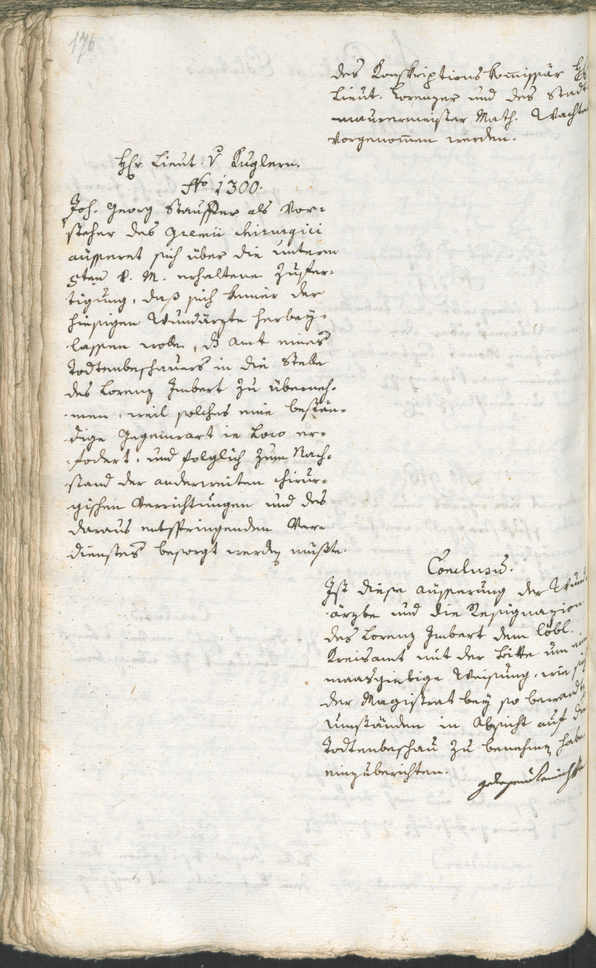 176
des Konskriptionskommissär H
Lieut. Lorenzer und des Stadt
maurermeister Math. Wachte
vorgenommen werden.
Hr Lieut. v Kuglern.
No 1300.
Joh. Georg Stauffer als Vor-
steher des Gremii chirurgici
äusseret sich über die unterm
5ten d. M. erhaltene Zufer-
tigung, daß sich keiner der
hiesigen Wundärzte herbey-
lassen wolle, das Amt eines
Todtenbeschauers in die Stelle
des Lorenz Imbert zu überneh-
men, weil solches eine bestän-
dige Gegenwart in Loco er-
fodert, und folglich zum Nach-
stand der anderweiten chirur-
gischen Verrichtungen und des
daraus entspringenden Ver-
dienstes besorgt werden müßte.
Conclusum.
Ist diese äusserung der Wund
ärzte und die Resignazion
des Lorenz Imbert dem löbl.
Kreisamt mit der Bitte um eine
maasgiebige Weisung, wie sich
der Magistrat bey so bewandten
Umständen in Absicht auf die
Todtenbeschau zu benehmen habe
einzuberichten.